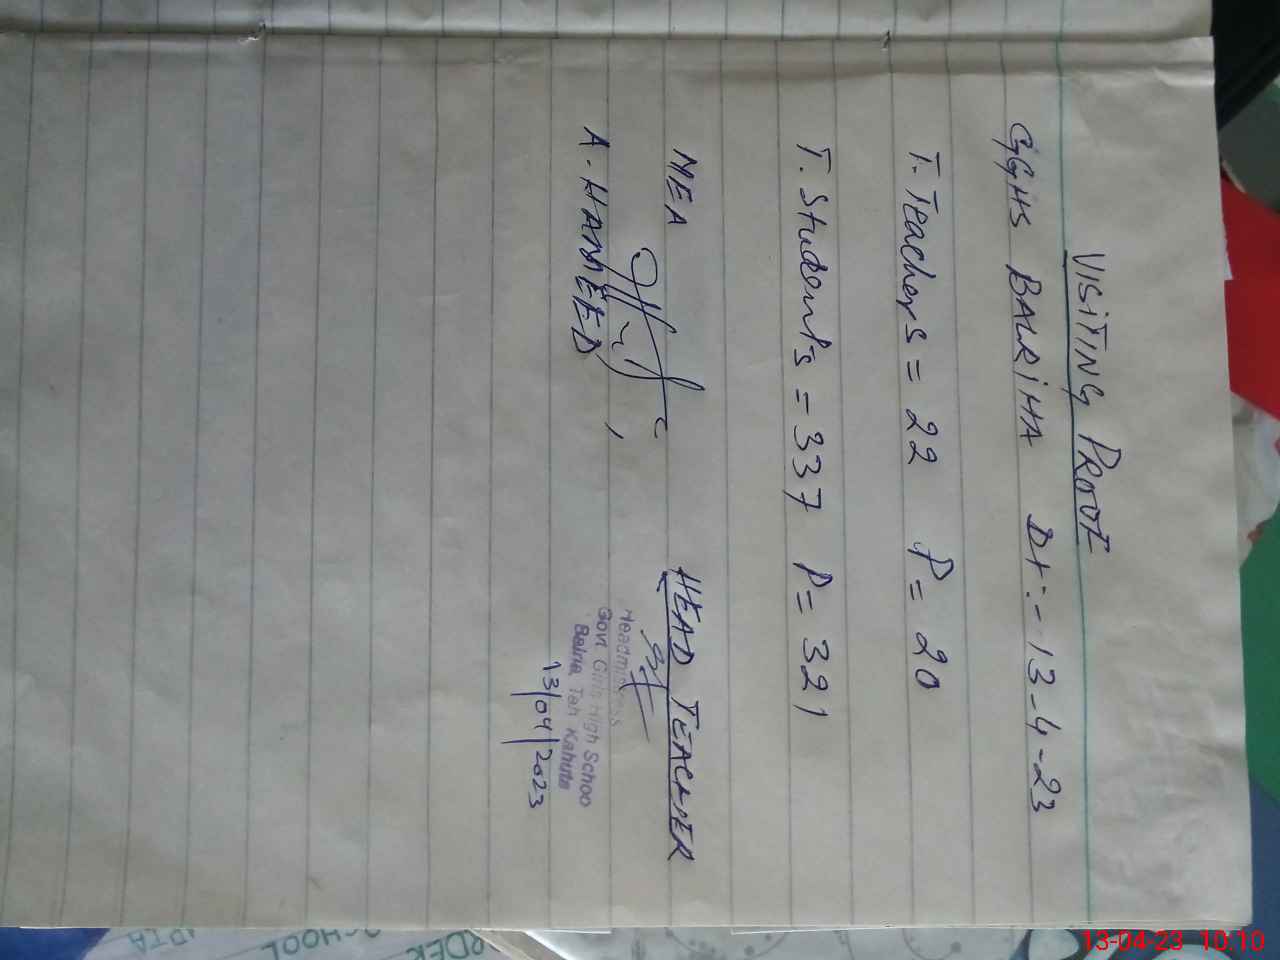 VISITING PROOF
GGHS BALRIHA Dt:- 13-4-23
T. Teachers = 22 P= 20
T. Students = 337 P= 321
MEA HEAD TEACHER
A. HAMEED
Headmistress
Govt. Girls High Schoo
Kahuta
13/04/2023
RDER
SCHOOL
13-04-23 10:10